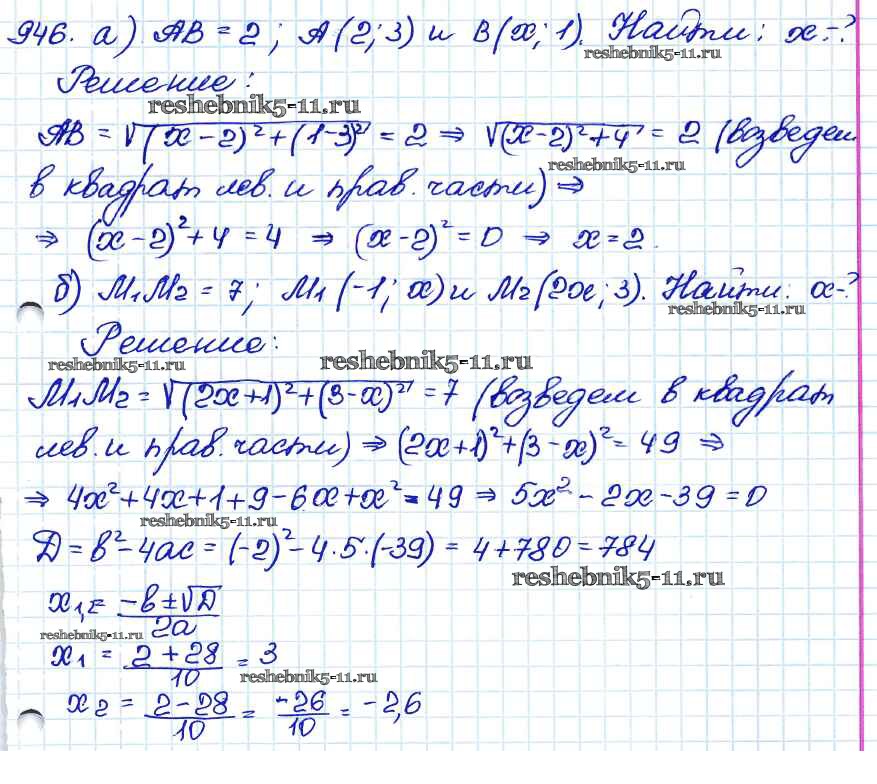 946. а) AB = 2; A(2; 3) и B(x; 1). Найти: x-?
reshebnik5-11.ru
Решение:
reshebnik5-11.ru
AB = √((x-2)²+(1-3)²) = 2 ⇒ √((x-2)²+4) = 2 (возведем
reshebnik5-11.ru
в квадрат лев. и прав. части) ⇒
⇒ (x-2)²+4 = 4 ⇒ (x-2)² = 0 ⇒ x = 2.
б) M₁M₂ = 7; M₁(-1; x) и M₂(2x; 3). Найти: x-?
reshebnik5-11.ru
Решение:
reshebnik5-11.ru reshebnik5-11.ru
M₁M₂ = √((2x+1)²+(3-x)²) = 7 (возведем в квадрат
лев. и прав. части) ⇒ (2x+1)²+(3-x)² = 49 ⇒
⇒ 4x²+4x+1+9-6x+x² = 49 ⇒ 5x²-2x-39 = 0
reshebnik5-11.ru
Д = в²-4ac = (-2)²-4·5·(-39) = 4+780 = 784
reshebnik5-11.ru
x₁,₂ = (-в±√Д)/2a
reshebnik5-11.ru
x₁ = (2+28)/10 = 3
reshebnik5-11.ru
x₂ = (2-28)/10 = -26/10 = -2,6